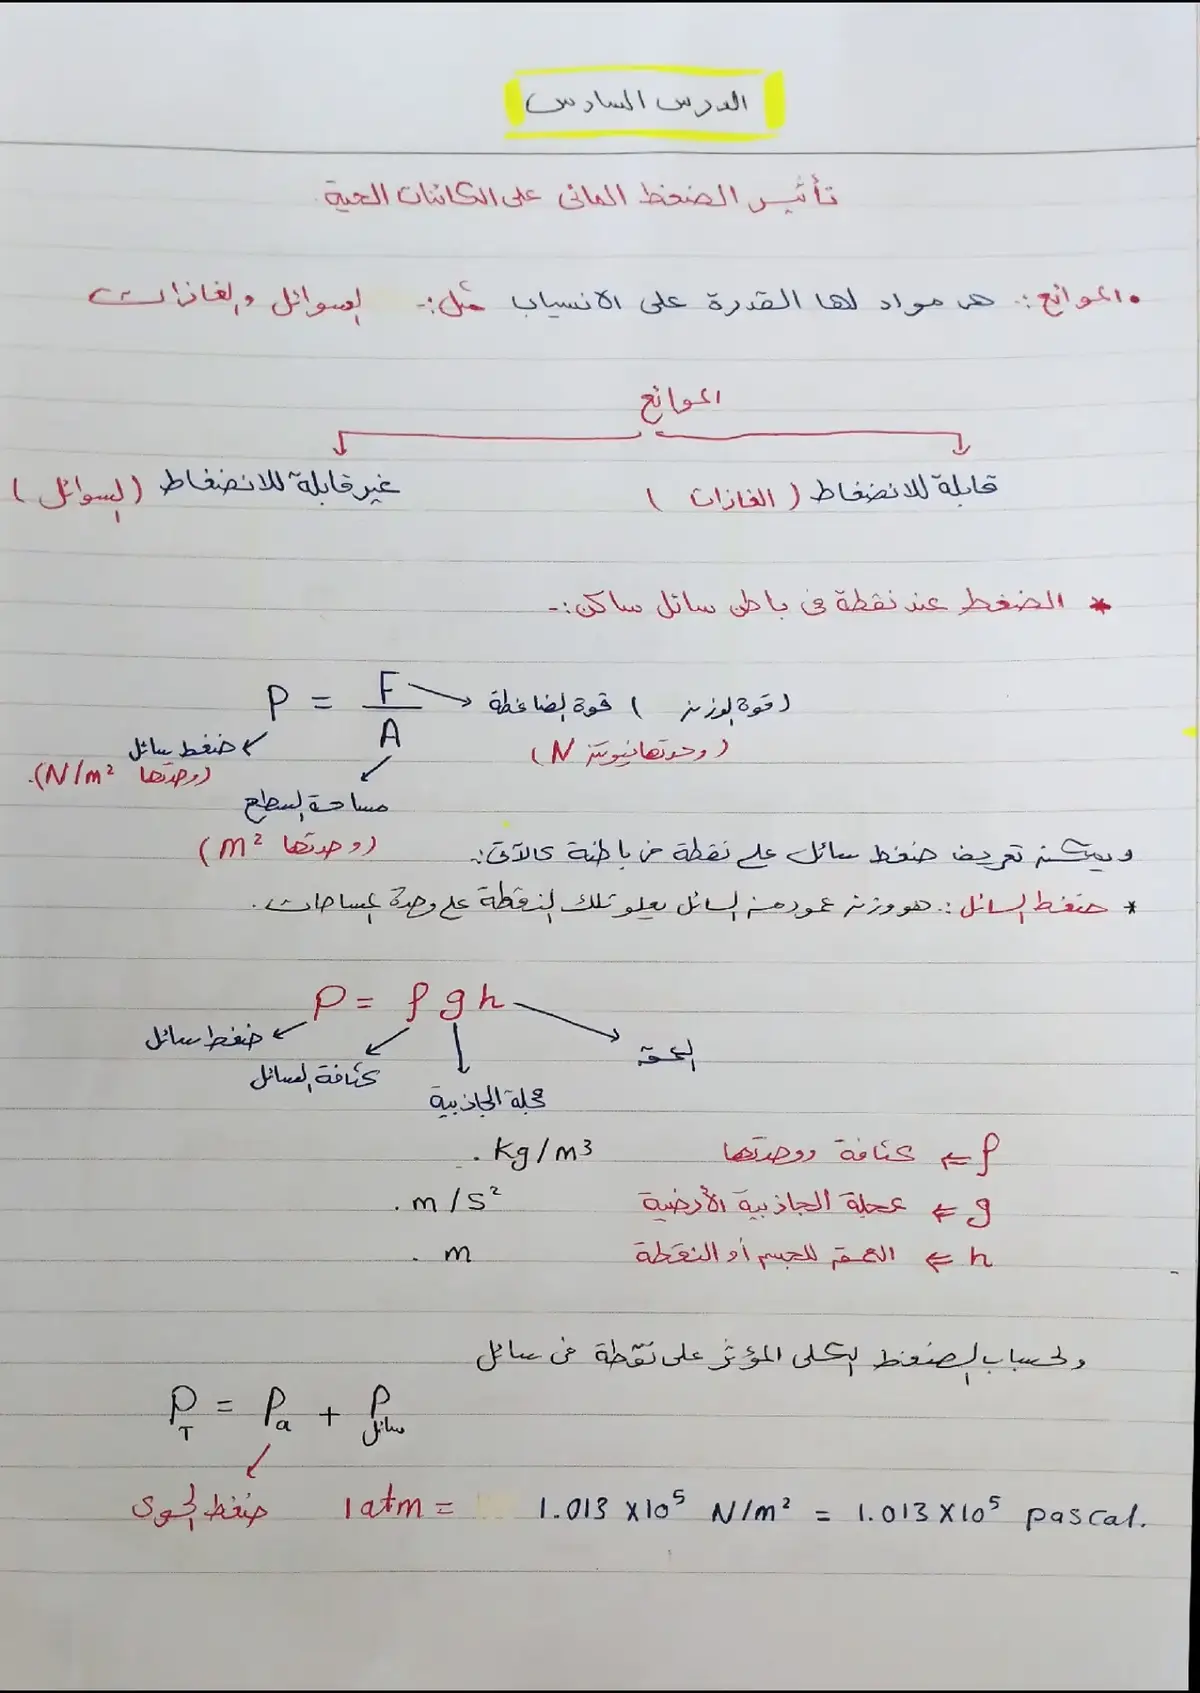 الدرس السادس
تأثير الضغط المائى على الكائنات الحية.
• الموائع :. هى مواد لها القدرة على الانسياب مثل :- السوائل والغازات
الموائع
قابلة للانضغاط ( الغازات )
غير قابلة للانضغاط ( السوائل )
* الضغط عند نقطة فى باطن سائل ساكن :-
P = F / A
قوة الضاغطة ( قوة الوزن )
( وحدتها نيوتن N )
ضغط سائل
( وحدتها N/m² ).
مساحة السطح
( وحدتها m² )
ويمكن تعريف ضغط سائل على نقطة فى باطنة كالآتى :.
* ضغط السائل :. هو وزن عمود من السائل يعلو تلك النقطة على وحدة المساحات .
P = ρ g h
ضغط سائل
كثافة السائل
عجلة الجاذبية
العمق
ρ ⇐ كثافة ووحدتها kg/m3 .
g ⇐ عجلة الجاذبية الأرضية m/s² .
h ⇐ العمق للجسم أو النقطة m .
ولحساب الضغط الكلى المؤثر على نقطة فى سائل
P_T = P_a + P_سائل
ضغط الجوى 1 atm = 1.013 x10⁵ N/m² = 1.013 x10⁵ pascal.